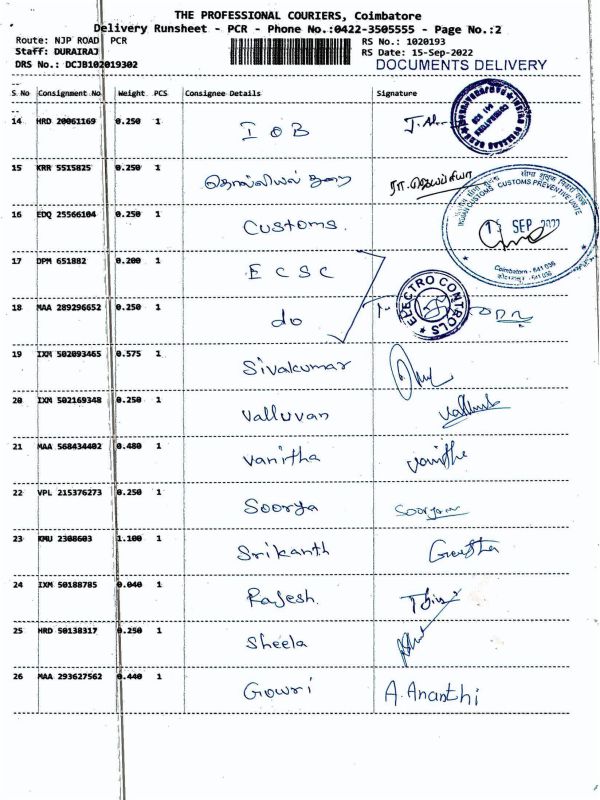 THE PROFESSIONAL COURIERS, Coimbatore
Delivery Runsheet - PCR - Phone No.:0422-3505555 - Page No.:2
Route: NJP ROAD PCR RS No.: 1020193
Staff: DURAIRAJ RS Date: 15-Sep-2022
DRS No.: DCJB102019302 DOCUMENTS DELIVERY
S.No Consignment No Weight PCS Consignee Details Signature
14 HRD 20061169 0.250 1 I O B
15 KRR 5515825 0.250 1
16 EDQ 25566104 0.250 1 Customs.
INDIAN CUSTOMS CUSTOMS PREVENTIVE UNIT
15 SEP 2022
Coimbatore - 641 036
17 DPM 651882 0.200 1 E C S C
18 MAA 289296652 0.250 1 do
ELECTRO CONTROLS
19 IXM 502093465 0.575 1 Sivakumar
20 IXM 502169348 0.250 1 Valluvan
21 MAA 568434402 0.480 1 Vanitha Vanitha
22 VPL 215376273 0.250 1 Soorya
23 KMU 2308603 1.100 1 Srikanth
24 IXM 50188785 0.040 1 Rajesh.
25 HRD 50138317 0.250 1 Sheela
26 MAA 293627562 0.440 1 Gowri A. Ananthi